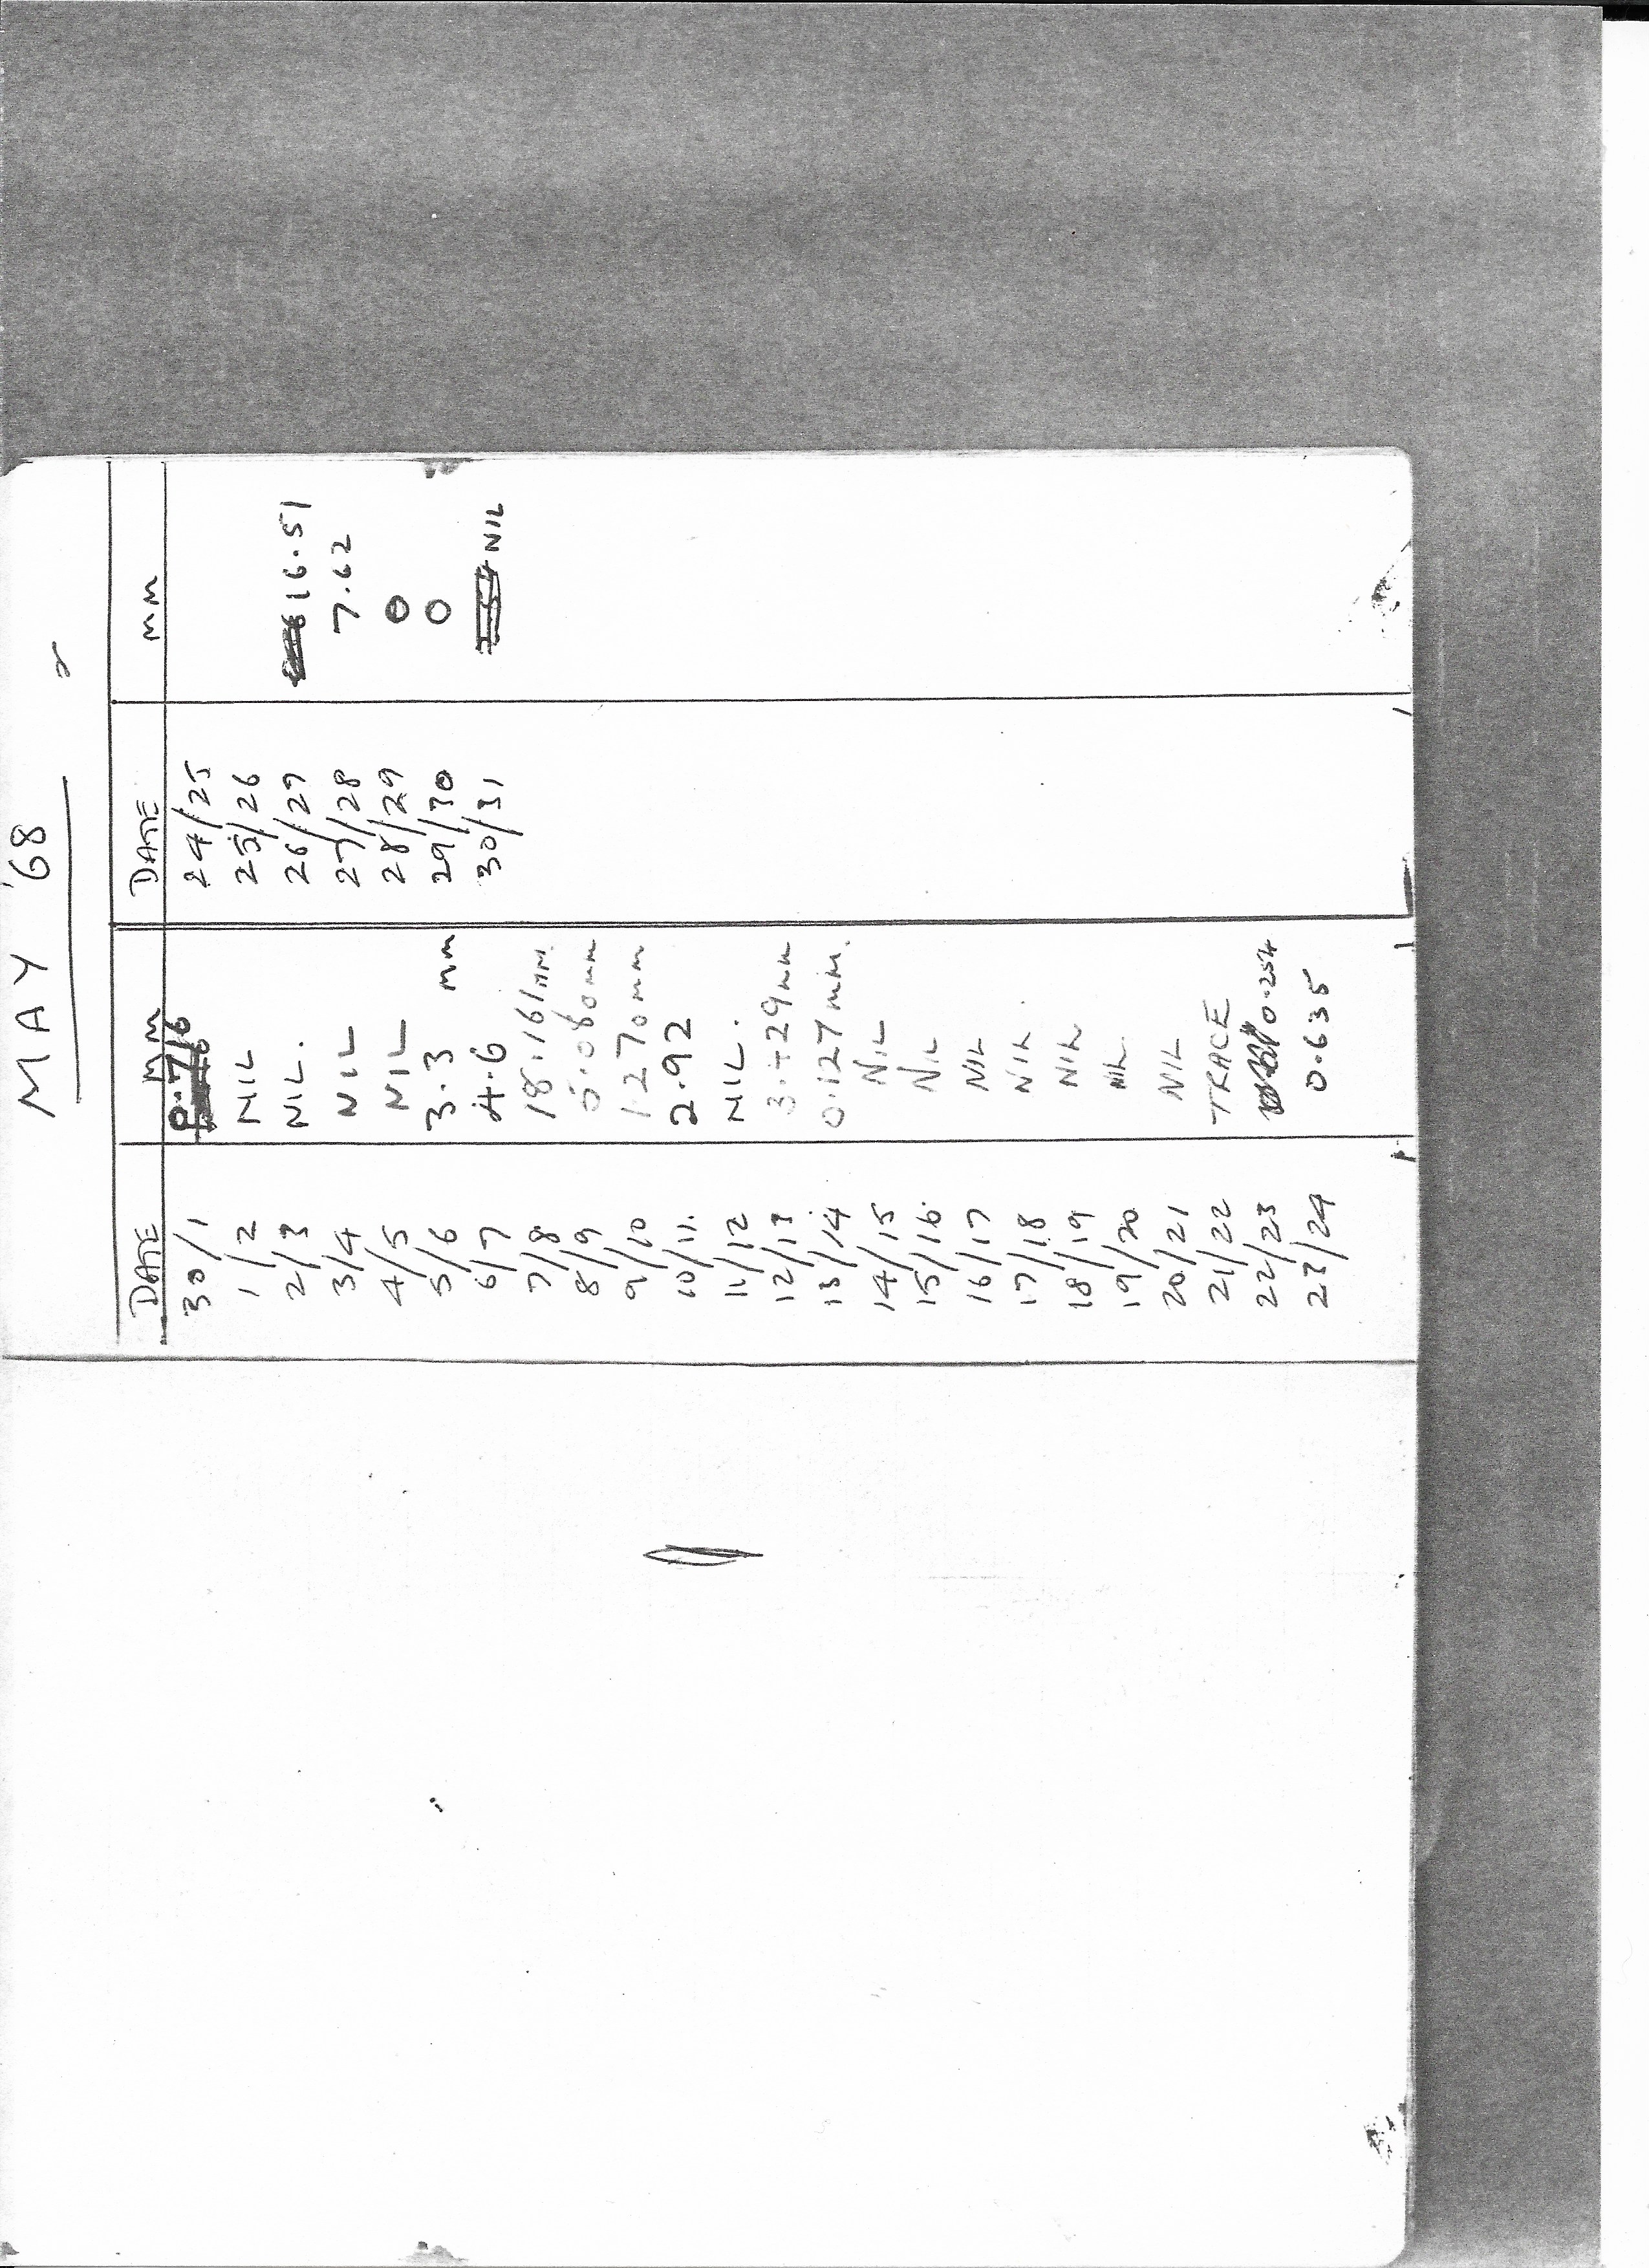 MAY '68
DATE mm DATE mm
30/1 24/25
1/2 NIL 25/26
2/3 NIL. 26/27 16.51
3/4 NIL 27/28 7.62
4/5 NIL 28/29 0
5/6 3.3 mm 29/30 0
6/7 4.6 30/31 NIL
7/8 18.161mm.
8/9 5.080mm
9/10 1.270mm
10/11. 2.92
11/12 NIL.
12/13 3.429mm
13/14 0.127mm.
14/15 NIL
15/16 NIL
16/17 NIL
17/18 NIL.
18/19 NIL
19/20 NIL
20/21 NIL
21/22 TRACE
22/23 0.254
23/24 0.635